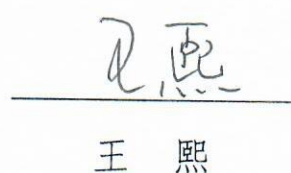 王熙
王 熙